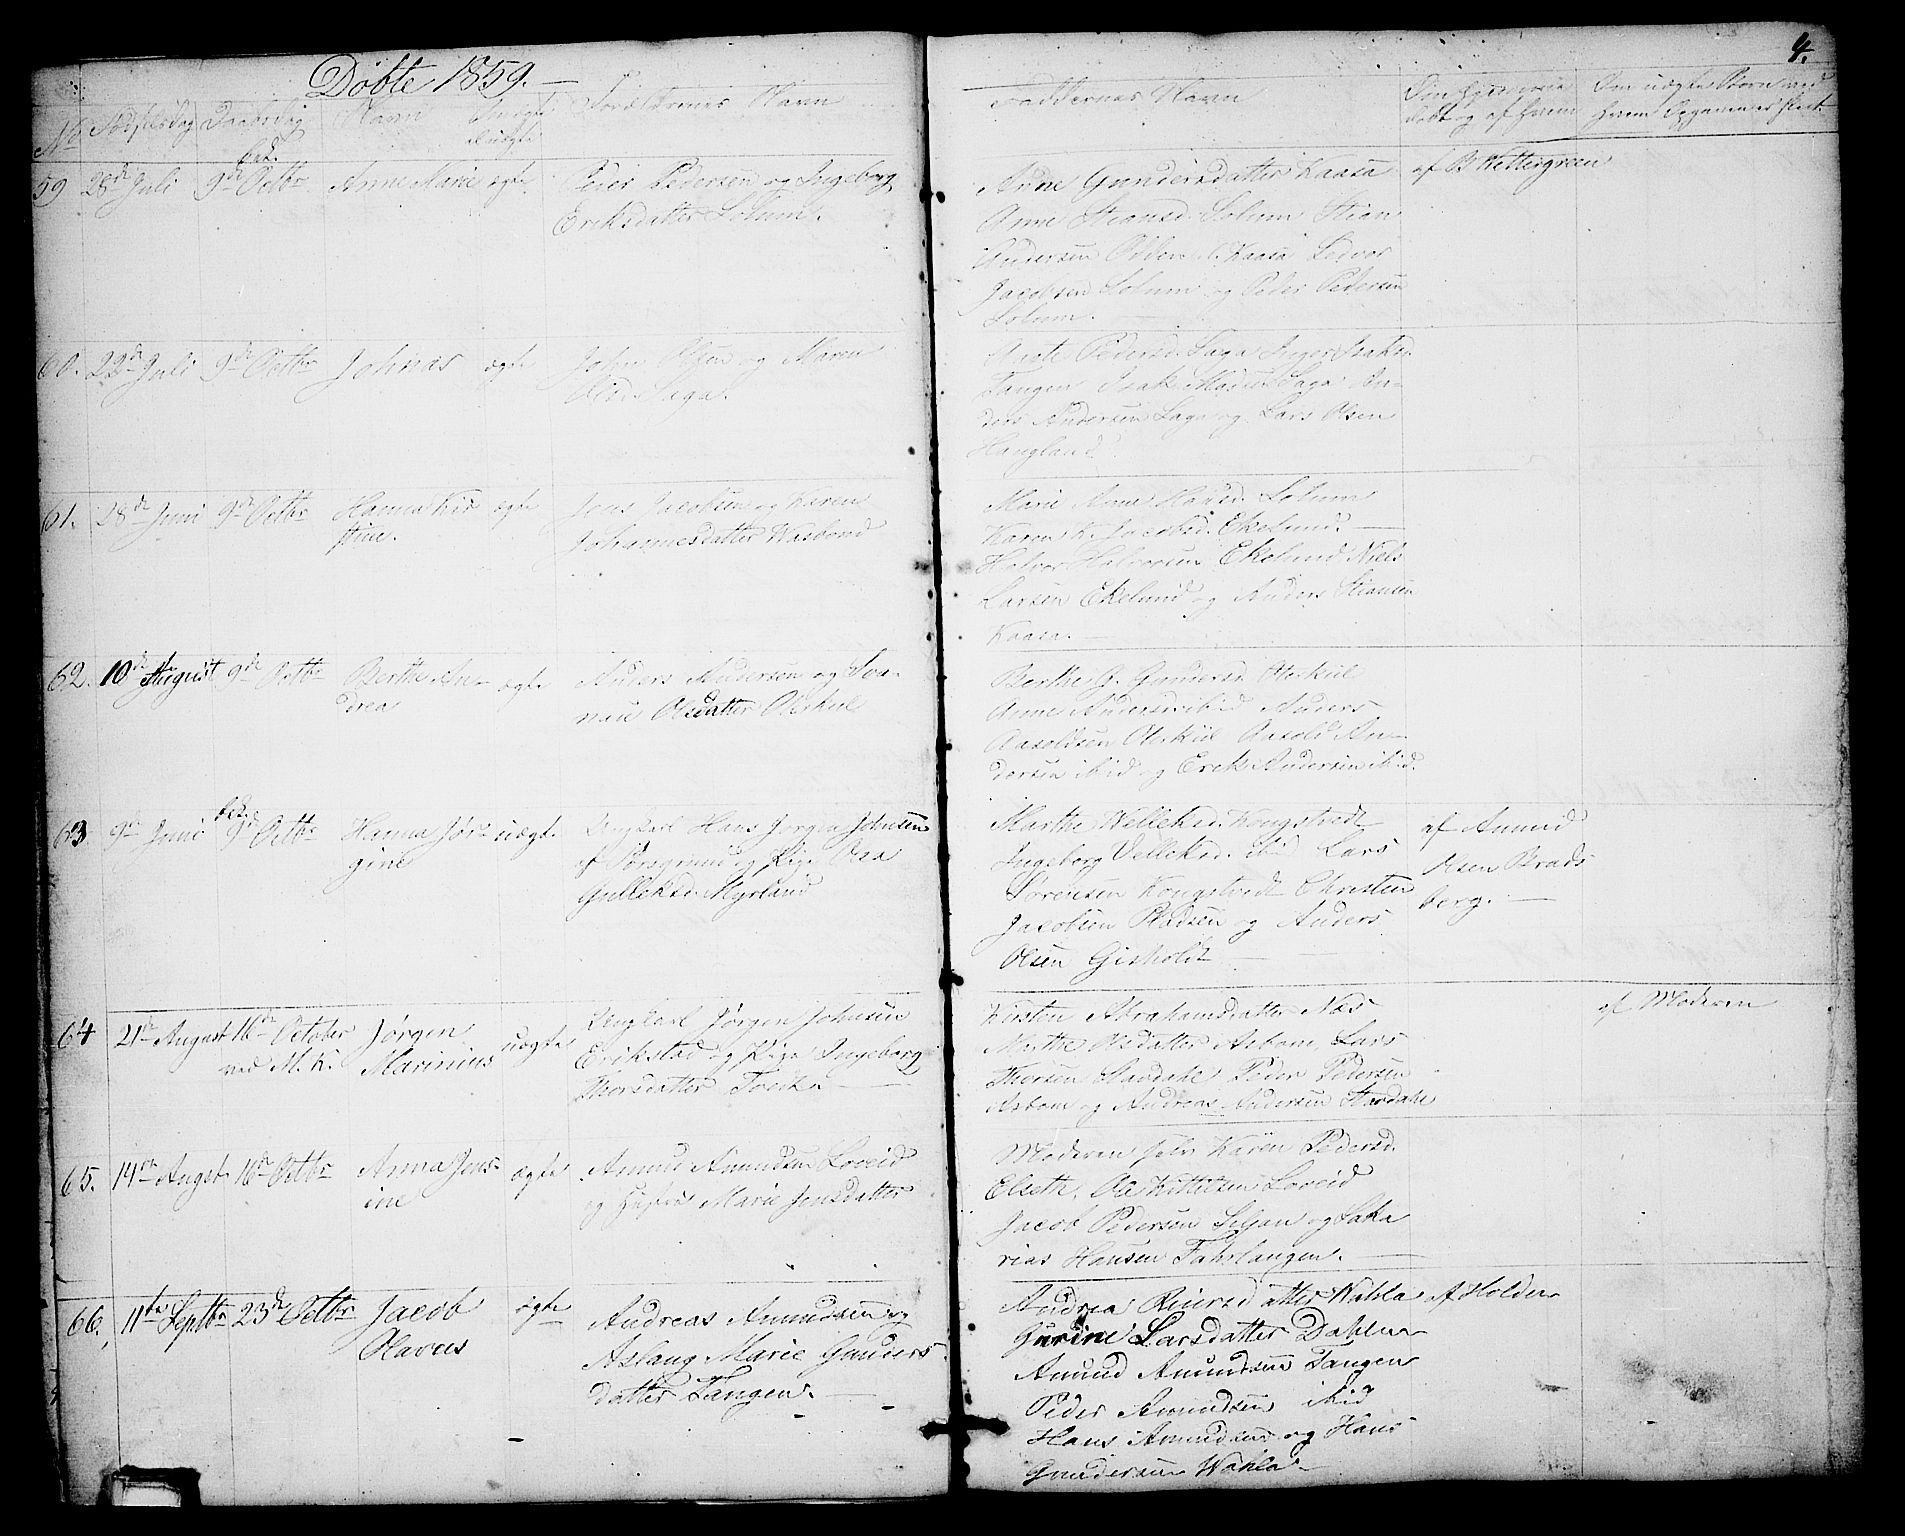 Døbte 1859.
4.
No Fødselsdag Daabsdag Navn Om ægte el. uægte Forældrenes Navn
Faddernes Navn
Om hjemme døbt og af hvem
Om uægte Børn med hvem Opgaven er skeet
59 28de Juli bek. 9de Octbr Anne Marie ægte
Peder Pedersen og Ingeborg
Eriksdatter Solum.
Anne Gundersdatter Kaasa
Anne Stiansd. Solum Stian
Andersen Kaasa Ledvor
Jacobsen Solum og Peder Pedersen
Solum.
af B Kettergreen
60. 22de Juli 9de Octbr Johnas ægte
John og Maren
Saga.
Aaste Pedersd. Saga Inger Isaksd.
Tangen Isak Saga An-
ders Andersen Saga og Lars Olsen
Haugland
61. 28de Juni 9de Octbr Hanna Kir
stine. ægte
Jens Jacobsen og Karen
Johannesdatter Wasbond
Marie Anne Solum
Karen K. Jacobsd. Ekelund. —
Halvor Halvorsen Ekelund Niels
Larsen Ekelund og Anders Stiansen
Kaasa. —
62. 10de August 9de Octbr Berthe An-
drea ægte
Anders Andersen og Sva-
nau Olsdatter Oterkiil
Berthe G. Gundersd. Oterkiil
Anne Andersd. ibid Anders
Aasoldsen Oterkiil Aasold An-
dersen ibid og Erek Andersen ibid.
63 9de Juni bek. 9de Octbr Hanna Jør-
gine uægte
Ungkarl Hans Jørgen Johnsen
af Porsgrund og Pige Aaa
Gulleksd. Myrland
Marthe Wetleksd. Kongstvedt
Ingeborg Vetleksd. ibid Lars
Sørensen Kongstvedt Christen
Jacobsen Pladsen og Anders
Olsen Gisholdt —
af Amund
Olsen Brads
berg. —
64 21de August 16de October
ved M. K. Jørgen
Marinius uægte
Ungkarl Jørgen Johnsen
Erikstad og Pige Ingeborg
Thorsdatter —
Kirsten Abrahamsdatter Næs
Marthe Olsdatter Asbom, Lars
Thorsen Stavdahl Peder Pedersen
Asbom og Andreas Andersen Stavdahl
af Moderen
65. 14de Augst 16de Octbr Anna Jens-
ine ægte
Amund Amundsen Løveid
og Hustru Marie Jensdatter
Moderen selv Karen Pedersd.
Elseth, Ole Kittilsen Løveid
Jacob Pedersen Seljan og Saka
rias Hansen Fahrlangen. —
66, 11te Septbr 23de Octbr Jacob
Olavus ægte
Andreas Amundsen og
Aslaug Marie Gunders-
datter Tangen. —
Andrea Reiersdatter Wahla
Gurine Larsdatter Dahlen
Amund Amundsen Tangen
Peder Amundsen ibid
Hans Amundsen og Hans
Gundersen Wahla —
af Holden